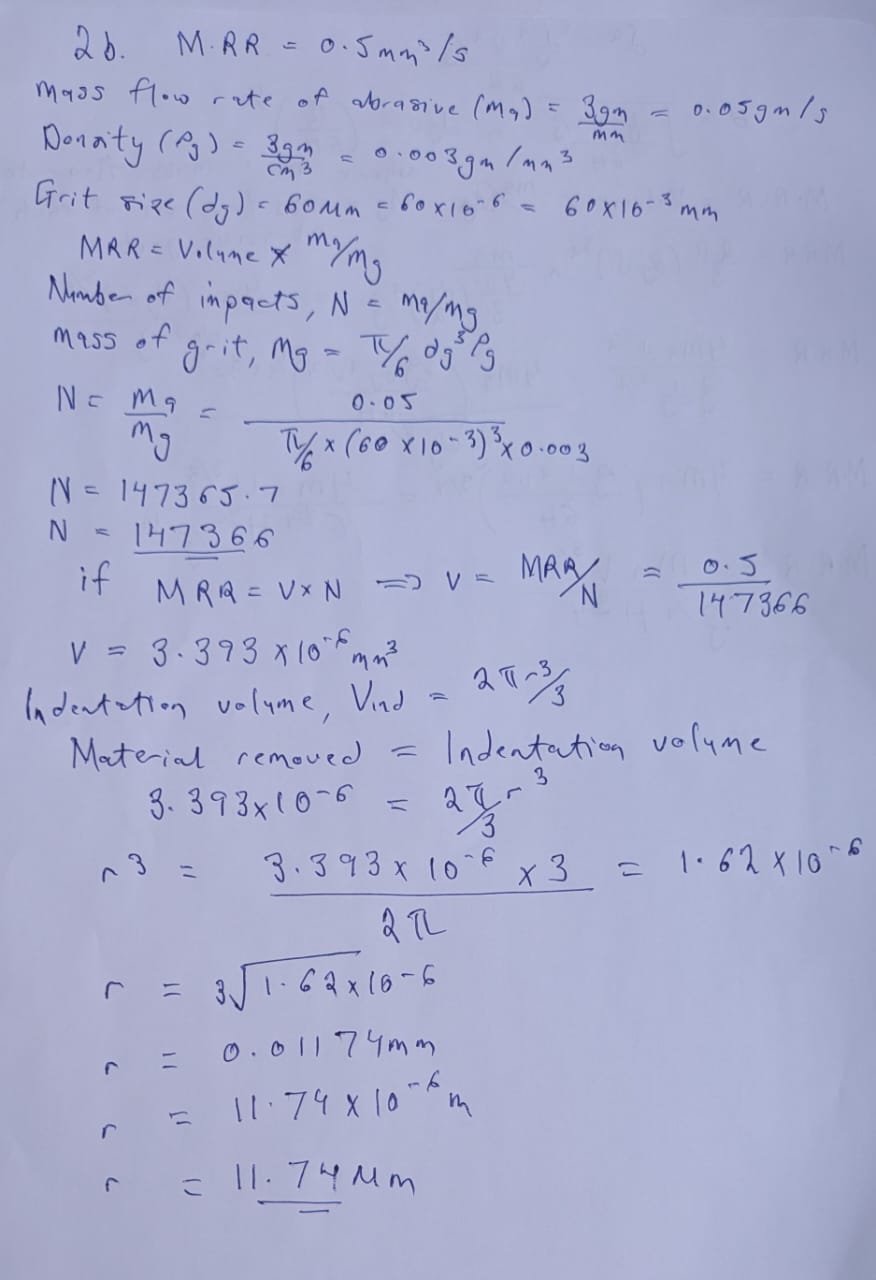 2b. M.RR = 0.5mm³/s
Mass flow rate of abrasive (ma) = 3gm/mm = 0.05gm/s
Density (ρg) = 3gm/cm³ = 0.003gm/mm³
Grit size (dg) = 60μm = 60x10⁻⁶ = 60x10⁻³ mm
MRR = Volume x ma/mg
Number of impacts, N = ma/mg
Mass of grit, Mg = π/6 dg³ρg
N = ma/mg = 0.05 / (π/6 x (60 x10⁻³)³ x 0.003)
N = 147365.7
N = 147366
if MRR = V x N => V = MRR/N = 0.5/147366
V = 3.393 x 10⁻⁶ mm³
Indentation volume, Vind = 2πr³/3
Material removed = Indentation volume
3.393x10⁻⁶ = 2π/3 r³
r³ = (3.393 x 10⁻⁶ x 3) / 2π = 1.62 x 10⁻⁶
r = ³√1.62x10⁻⁶
r = 0.01174mm
r = 11.74 x 10⁻⁶ m
r = 11.74 μm